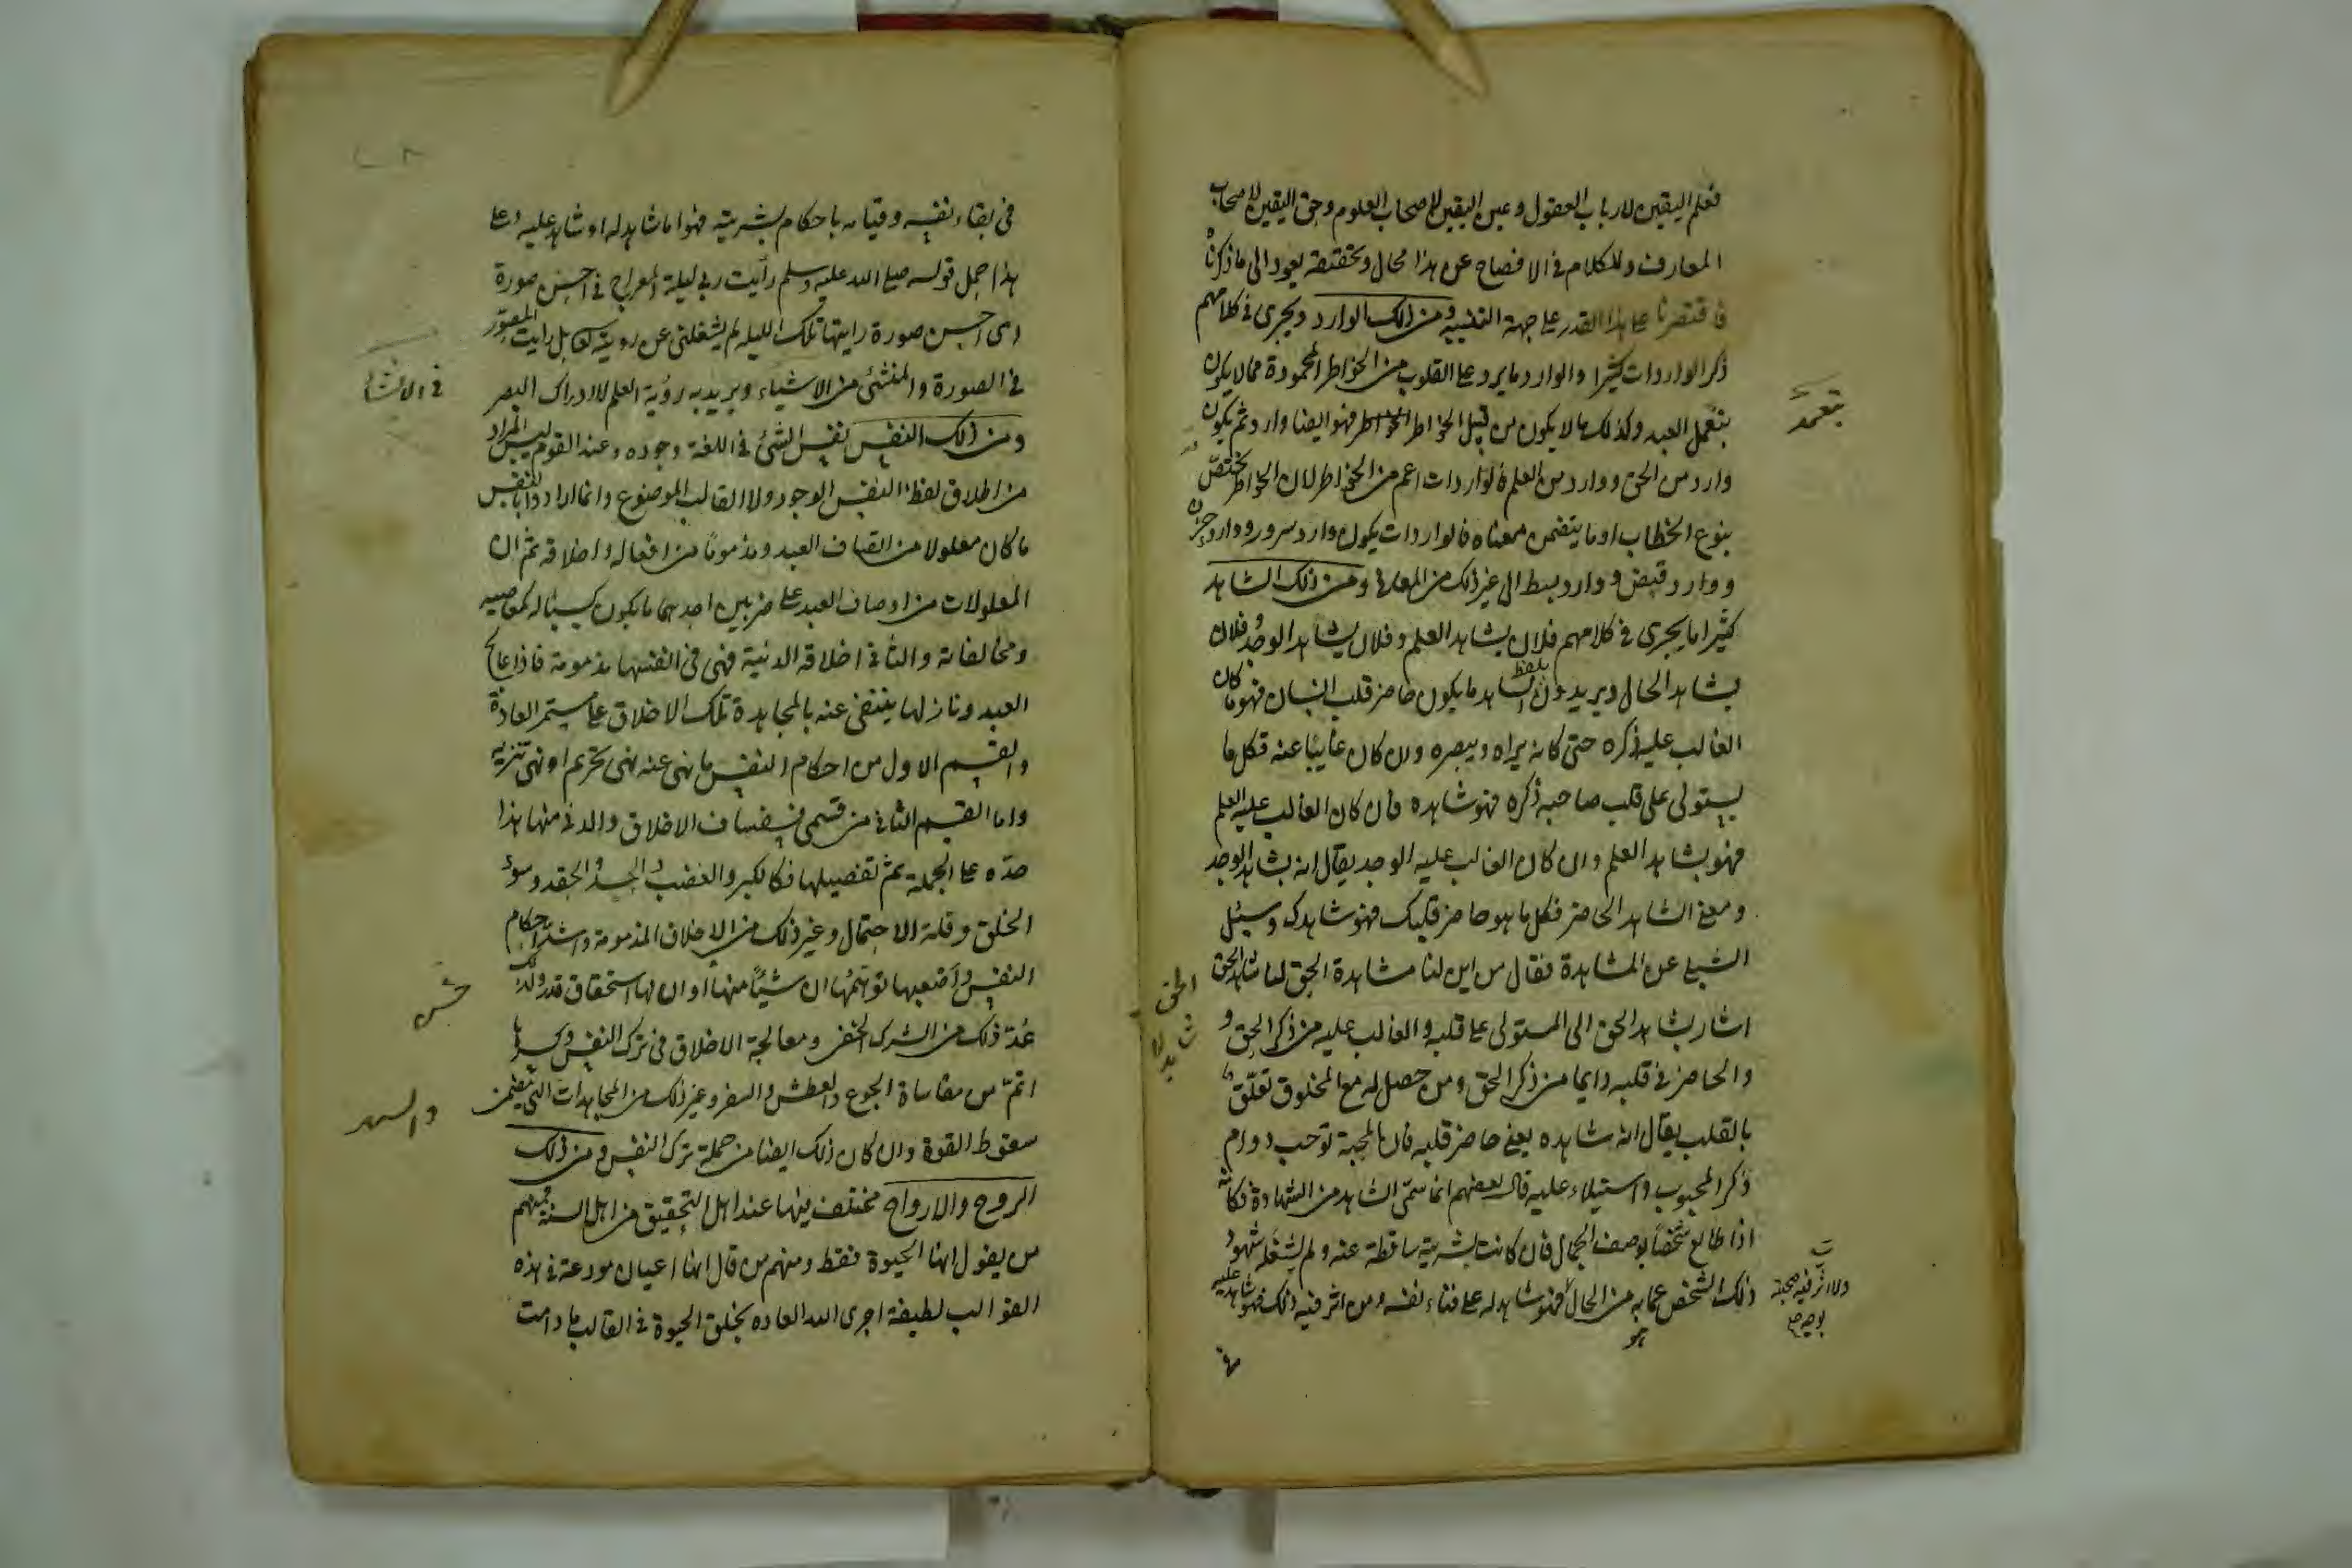 فعلم اليقين لارباب العقول وعين اليقين لاصحاب العلوم وحق اليقين لاصحاب
المعارف وللكلام فى الافصاح عن هذا مجال وتحقيقه يعود الى ما ذكرناه
فاقتصرنا على هذا القدر على جهة التنبيه ومن ذلك الوارد ويجرى فى كلامهم
ذكر الواردات كثيرا والوارد ما يرد على القلوب من الخواطر المحمودة مما لا يكون
بتعمل العبد وكذلك ما لا يكون من قبيل الخواطر فهو ايضا وارد ثم يكون
وارد من الحق ووارد من العلم فالواردات اعم من الخواطر لان الخواطر تختصّ
بنوع الخطاب او ما يتضمن معناه فالواردات يكون وارد سرور ووارد حزن
ووارد قبض ووارد بسط الى غير ذلك من المعانى ومن ذلك الشاهد
كثيرا ما يجرى فى كلامهم فلان يشاهد العلم وفلان يشاهد الوجد وفلان
يشاهد الحال ويريدون بلفظ الشاهد ما يكون حاضر قلب انسان فهو ما كان
الغالب عليه ذكره حتى كانه يراه ويبصره وان كان غايبا عنه فكل ما
يستولى على قلب صاحبه ذكره فهو شاهده فان كان الغالب عليه العلم
فهو يشاهد العلم وان كان الغالب عليه الوجد يقال انه يشاهد الوجد
ومعنى الشاهد الحاضر فكل ما هو حاضر قلبك فهو شاهدك وسئل
الشبلى عن المشاهدة فقال من اين لنا مشاهدة الحق لنا شاهد الحق
اشار بشاهد الحق الى المستولى على قلبه والغالب عليه من ذكر الحق و
والحاضر فى قلبه دايما من ذكر الحق ومن حصل له مع المخلوق تعلّق
بالقلب يقال انه شاهده يعنى حاضر قلبه فان المحبة توجب دوام
ذكر المحبوب واستيلاءه عليه قال بعضهم انما سمّى الشاهد من الشهادة فكانه
اذا طالع شخصًا بوصف الجمال فان كانت بشريته ساقطة عنه ولم يشغله شهود
ذلك الشخص عما به من الحال فهو شاهد له على فناء نفسه ومن اثر فيه ذلك فهو شاهد عليه
هو
فى
بتعمد
الحق
شاهد لا
ولا اثر فيه صحبة
بوجه صح
فى بقاء نفسه وقيامه باحكام بشريته فهو اما شاهد له او شاهد عليه وعلى
هذا حمل قوله صلى الله عليه وسلم رأيت ربى ليلة المعراج فى احسن صورة
اى احسن صورة رايتها تلك الليلة لم يشغلنى عن رويته تعالى بل رايت المصوّر
فى الصورة والمنشئ من الاشياء ويريد به رؤية العلم لا ادراك البصر
ومن ذلك النفس نفس الشئ فى اللغة وجوده وعند القوم ليس المراد
من اطلاق لفظ النفس الوجود ولا القالب الموضوع وانما ارادوا بالنفس
ما كان معلولا من اوصاف العبد ومذموما من افعاله واخلاقه ثم ان
المعلولات من اوصاف العبد على ضربين احدهما ما يكون كسبا له كمعاصيه
ومخالفاته والثانى اخلاقه الدنية فهى فى انفسها مذمومة فاذا عالج
العبد ونازلها ينتفى عنه بالمجاهدة تلك الاخلاق على مستمر العادة
والقسم الاول من احكام النفس ما نهى عنه نهى تحريم او نهى تنزيه
واما القسم الثانى من قسمى النفس فسفساف الاخلاق والدنى منها هذا
حدّه على الجملة ثم تفصيلها فكالكبر والغضب والحسد والحقد وسوء
الخلق وقلة الاحتمال وغير ذلك من الاخلاق المذمومة واشد احكام
النفس واصعبها توهّمها ان شيئًا منها او ان لها استحقاق قدر ولذلك
عُدّ ذلك من الشرك الخفى ومعالجة الاخلاق فى ترك النفس وكسرها
اتمّ من مقاساة الجوع والعطش والسفر وغير ذلك من المجاهدات التى يتضمن
سقوط القوة وان كان ذلك ايضا من جملة ترك النفس ومن ذلك
الروح والارواح مختلف فيها عند اهل التحقيق من اهل السنة فمنهم
من يقول انها الحيوة فقط ومنهم من قال انها اعيان مودعة فى هذه
القوالب لطيفة اجرى الله العاده بخلق الحيوة فى القالب ما دامت
فى الانشا
حسن
والسهر